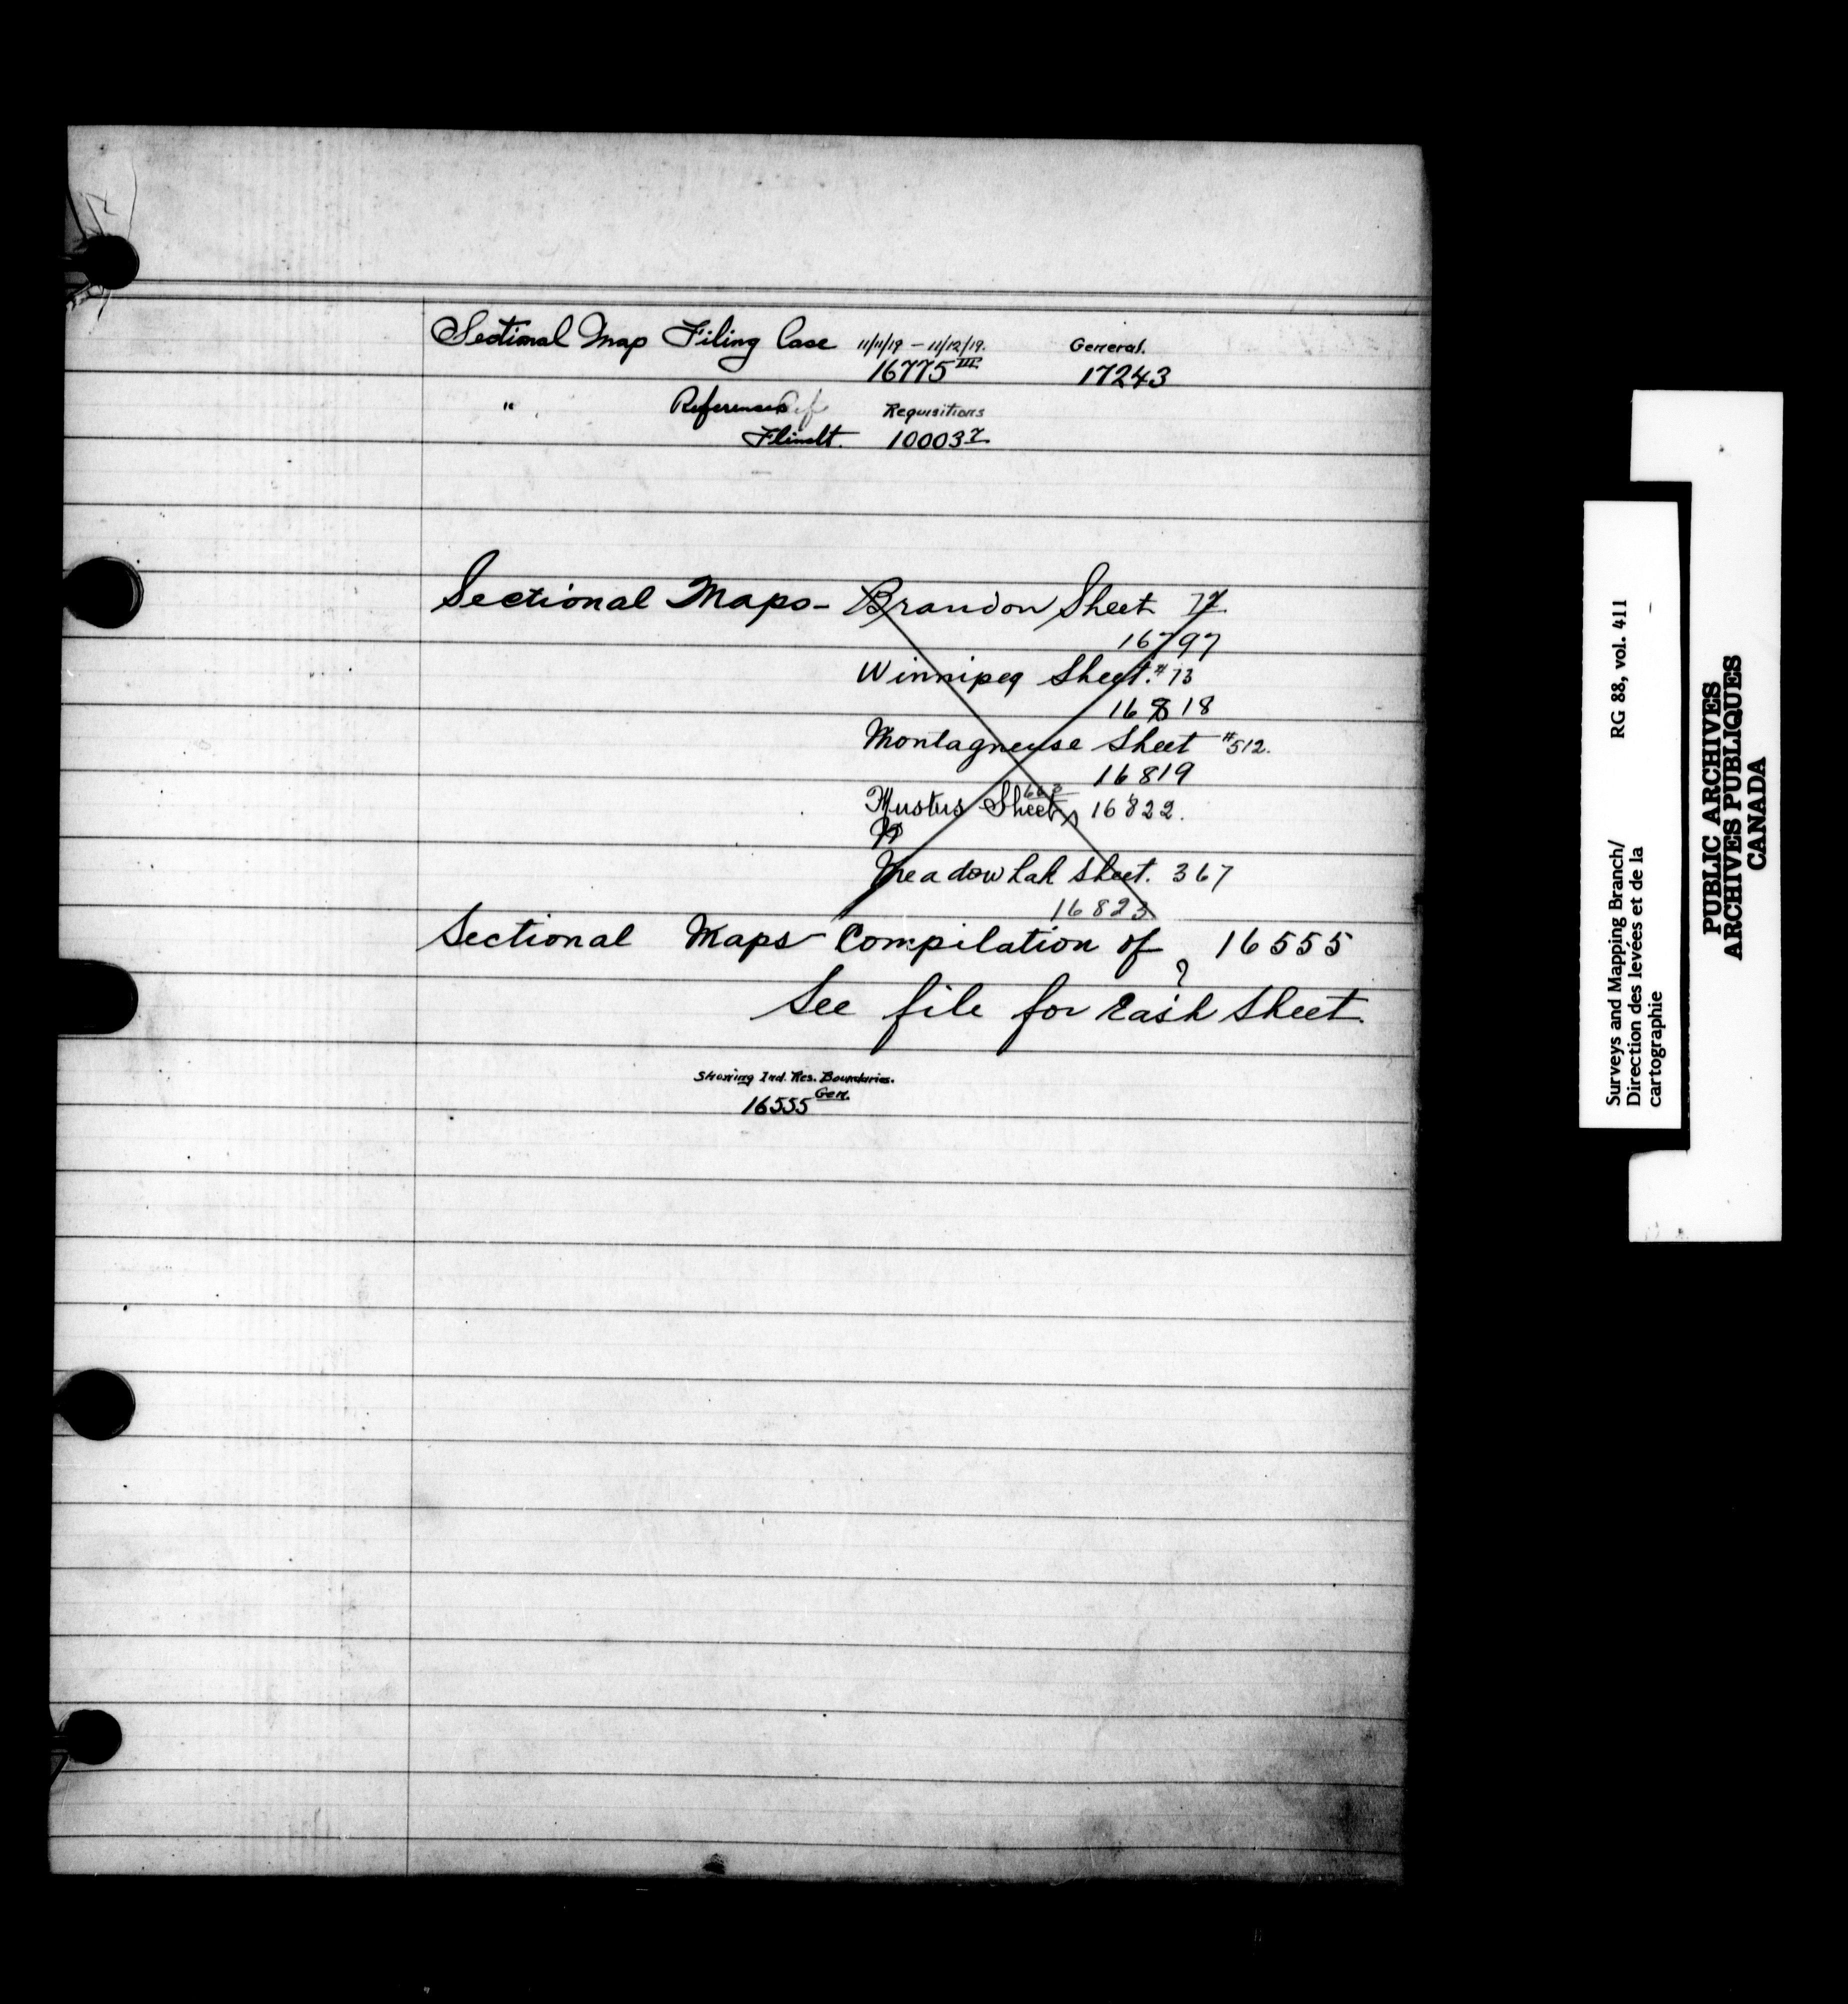 Sectional Map Filing Case 11/11/19 – 11/12/19. General.
16775 III 17243
" References Ref Requisitions
10003
Sectional Maps - Brandon Sheet 72
16797
Winnipeg Sheet. #73
16818
Montagneuse Sheet #512.
16819
Mustus Sheet 663 16822.
Meadow Lak Sheet. 367
16823
Sectional Maps Compilation of 16555
See file for Each Sheet.
Showing Ind. Res. Boundaries.
16555 Gen.
Surveys and Mapping Branch/ RG 88, vol. 411
Direction des levées et de la
cartographie
PUBLIC ARCHIVES
ARCHIVES PUBLIQUES
CANADA